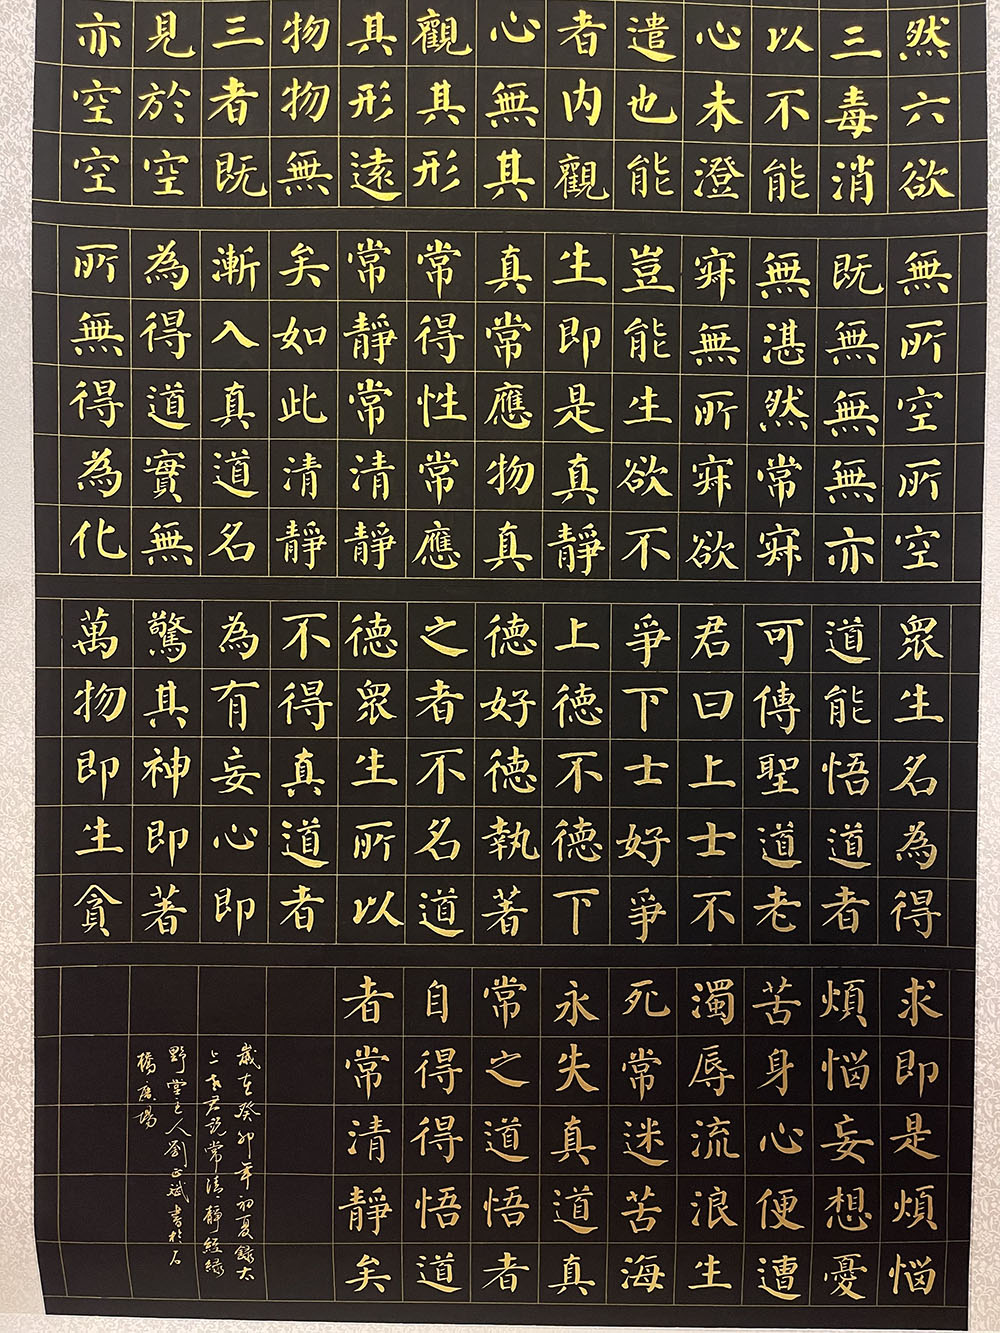 然六欲
三毒消
以不能
心未澄
遣也能
者内觀
心無其
觀其形
其形遠
物物無
三者既
見於空
亦空空
無所空所空
既無無無亦
無湛然常寂
寂無所寂欲
豈能生欲不
生即是真靜
真常應物真
常得性常應
常靜常清靜
矣如此清靜
漸入真道名
為得道實無
所無得為化
眾生名為得
道能悟道者
可傳聖道老
君曰上士不
爭下士好爭
上德不德下
德好德執著
之者不名道
德眾生所以
不得真道者
為有妄心即
驚其神即著
萬物即生貪
求即是煩惱
煩惱妄想憂
苦身心便遭
濁辱流浪生
死常迷苦海
永失真道真
常之道悟者
自得得悟道
者常清靜矣
歲在癸卯年初夏錄太
上老君說常清靜經綠
野堂主人劉正斌書於石
橋廣場